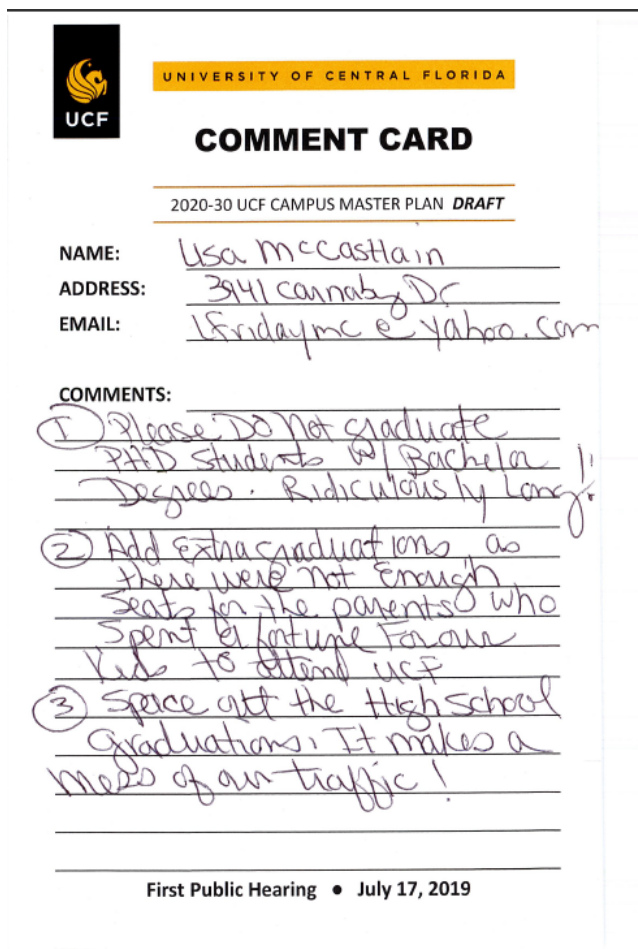 UCF
UNIVERSITY OF CENTRAL FLORIDA
COMMENT CARD
2020-30 UCF CAMPUS MASTER PLAN DRAFT
NAME: Lisa McCastlain
ADDRESS: 3941 Cannaby Dr
EMAIL: lfridaymc@yahoo.com
COMMENTS:
① Please Do Not graduate
PHD Students w/ Bachelor
Degrees. Ridiculously Long!!
② Add extra graduations as
there were not Enough
Seats for the parents who
Spent a fortune For our
Kids to attend UCF
③ Space out the High School
graduations. It makes a
mess of our traffic!
First Public Hearing • July 17, 2019